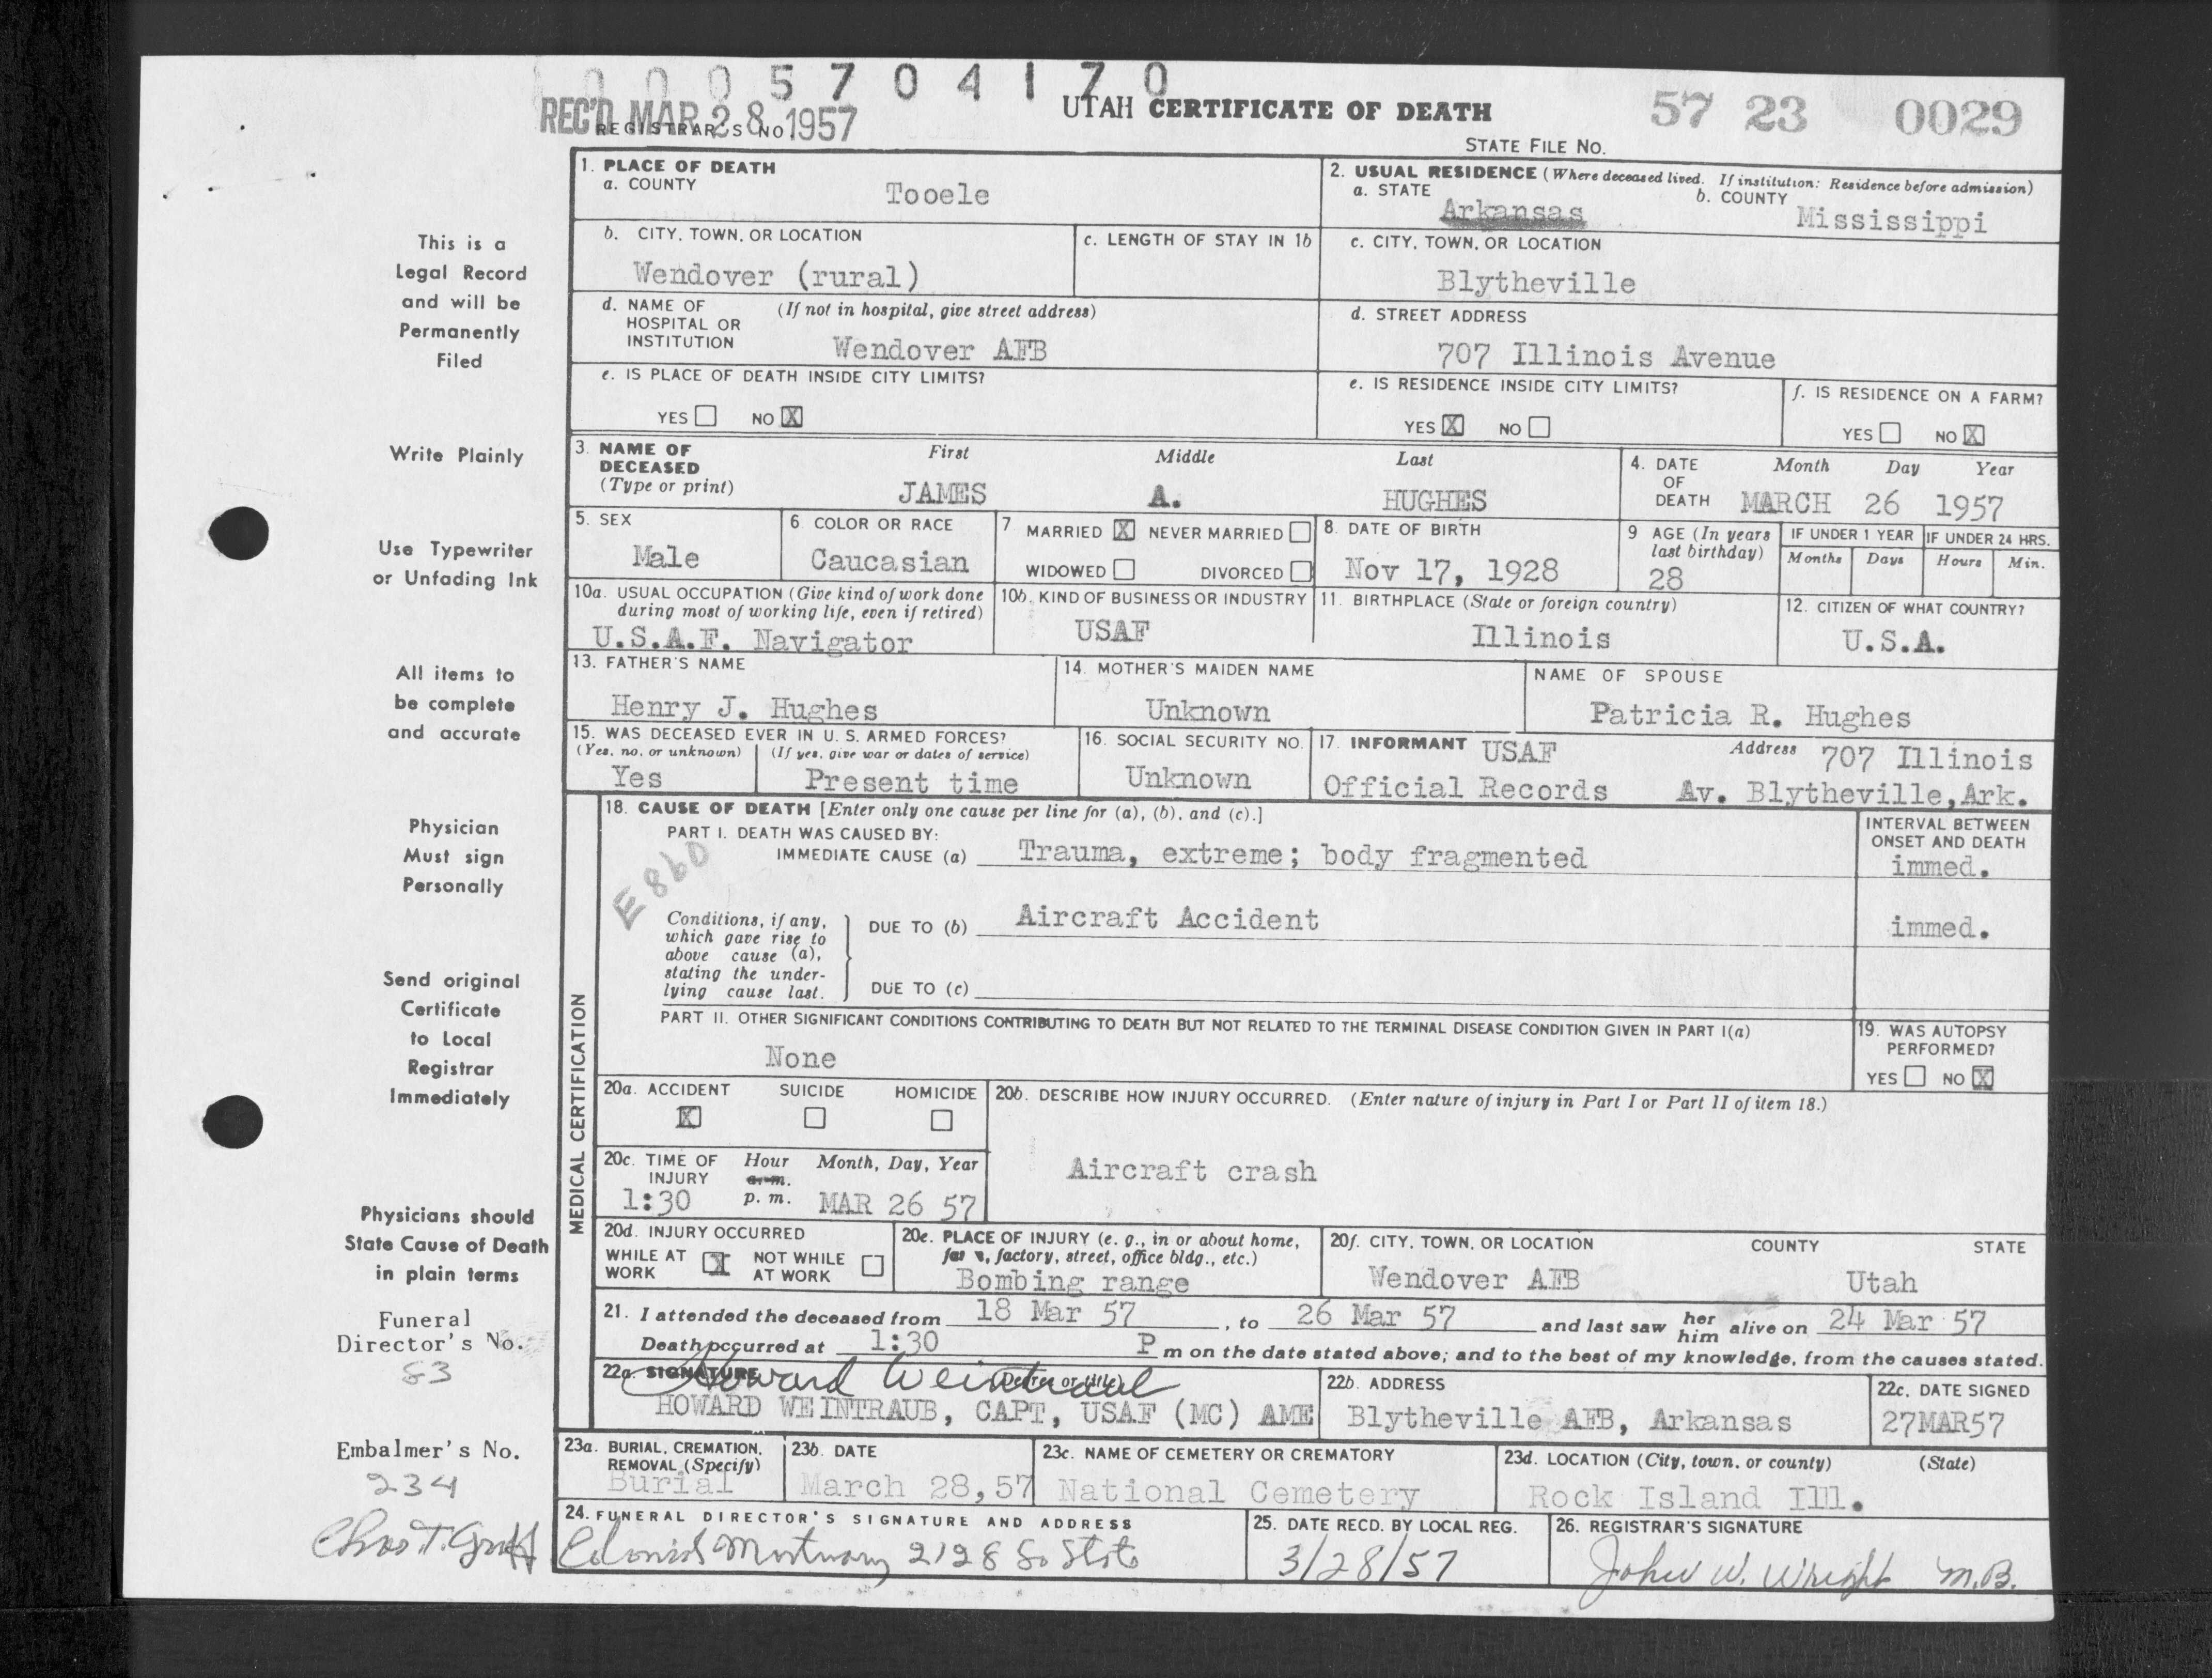 0005704170
REC'D MAR 28 1957
REGISTRAR'S NO
UTAH CERTIFICATE OF DEATH
57 23 0029
STATE FILE NO.
1. PLACE OF DEATH
a. COUNTY
Tooele
2. USUAL RESIDENCE (Where deceased lived. If institution: Residence before admission)
a. STATE
Arkansas
b. COUNTY
Mississippi
b. CITY, TOWN, OR LOCATION
Wendover (rural)
c. LENGTH OF STAY IN 1b
c. CITY, TOWN, OR LOCATION
Blytheville
d. NAME OF HOSPITAL OR INSTITUTION
(If not in hospital, give street address)
Wendover AFB
d. STREET ADDRESS
707 Illinois Avenue
e. IS PLACE OF DEATH INSIDE CITY LIMITS?
YES NO X
e. IS RESIDENCE INSIDE CITY LIMITS?
YES X NO
f. IS RESIDENCE ON A FARM?
YES NO X
3. NAME OF DECEASED
(Type or print)
First Middle Last
JAMES A. HUGHES
4. DATE OF DEATH
Month Day Year
MARCH 26 1957
5. SEX
Male
6 COLOR OR RACE
Caucasian
7 MARRIED X NEVER MARRIED
WIDOWED DIVORCED
8. DATE OF BIRTH
Nov 17, 1928
9 AGE (In years last birthday)
28
IF UNDER 1 YEAR
Months Days
IF UNDER 24 HRS.
Hours Min.
10a. USUAL OCCUPATION (Give kind of work done during most of working life, even if retired)
U.S.A.F. Navigator
10b. KIND OF BUSINESS OR INDUSTRY
USAF
11. BIRTHPLACE (State or foreign country)
Illinois
12. CITIZEN OF WHAT COUNTRY?
U.S.A.
13. FATHER'S NAME
Henry J. Hughes
14. MOTHER'S MAIDEN NAME
Unknown
NAME OF SPOUSE
Patricia R. Hughes
15. WAS DECEASED EVER IN U. S. ARMED FORCES?
(Yes, no, or unknown) (If yes, give war or dates of service)
Yes Present time
16. SOCIAL SECURITY NO.
Unknown
17. INFORMANT USAF
Official Records
Address 707 Illinois
Av. Blytheville, Ark.
MEDICAL CERTIFICATION
18. CAUSE OF DEATH [Enter only one cause per line for (a), (b), and (c).]
PART I. DEATH WAS CAUSED BY:
IMMEDIATE CAUSE (a) Trauma, extreme; body fragmented
E860
INTERVAL BETWEEN ONSET AND DEATH
immed.
Conditions, if any, which gave rise to above cause (a), stating the underlying cause last.
DUE TO (b) Aircraft Accident
immed.
DUE TO (c)
PART II. OTHER SIGNIFICANT CONDITIONS CONTRIBUTING TO DEATH BUT NOT RELATED TO THE TERMINAL DISEASE CONDITION GIVEN IN PART I(a)
None
19. WAS AUTOPSY PERFORMED?
YES NO X
20a. ACCIDENT SUICIDE HOMICIDE
X
20b. DESCRIBE HOW INJURY OCCURRED. (Enter nature of injury in Part I or Part II of item 18.)
Aircraft crash
20c. TIME OF INJURY
Hour Month, Day, Year
a. m.
1:30 p. m. MAR 26 57
20d. INJURY OCCURRED
WHILE AT WORK X NOT WHILE AT WORK
20e. PLACE OF INJURY (e. g., in or about home, farm, factory, street, office bldg., etc.)
Bombing range
20f. CITY, TOWN, OR LOCATION COUNTY STATE
Wendover AFB Utah
21. I attended the deceased from 18 Mar 57, to 26 Mar 57 and last saw her him alive on 24 Mar 57
Death occurred at 1:30 P m on the date stated above; and to the best of my knowledge, from the causes stated.
22a. SIGNATURE (Degree or title)
Howard Weintraub
HOWARD WEINTRAUB, CAPT, USAF (MC) AME
22b. ADDRESS
Blytheville AFB, Arkansas
22c. DATE SIGNED
27MAR57
23a. BURIAL, CREMATION, REMOVAL (Specify)
Burial
23b. DATE
March 28, 57
23c. NAME OF CEMETERY OR CREMATORY
National Cemetery
23d. LOCATION (City, town, or county) (State)
Rock Island Ill.
24. FUNERAL DIRECTOR'S SIGNATURE AND ADDRESS
Colonial Mortuary 2128 So State
25. DATE RECD. BY LOCAL REG.
3/28/57
26. REGISTRAR'S SIGNATURE
John W. Wright M.D.
This is a
Legal Record
and will be
Permanently
Filed
Write Plainly
Use Typewriter
or Unfading Ink
All items to
be complete
and accurate
Physician
Must sign
Personally
Send original
Certificate
to Local
Registrar
Immediately
Physicians should
State Cause of Death
in plain terms
Funeral
Director's No.
83
Embalmer's No.
234
Chas. T.